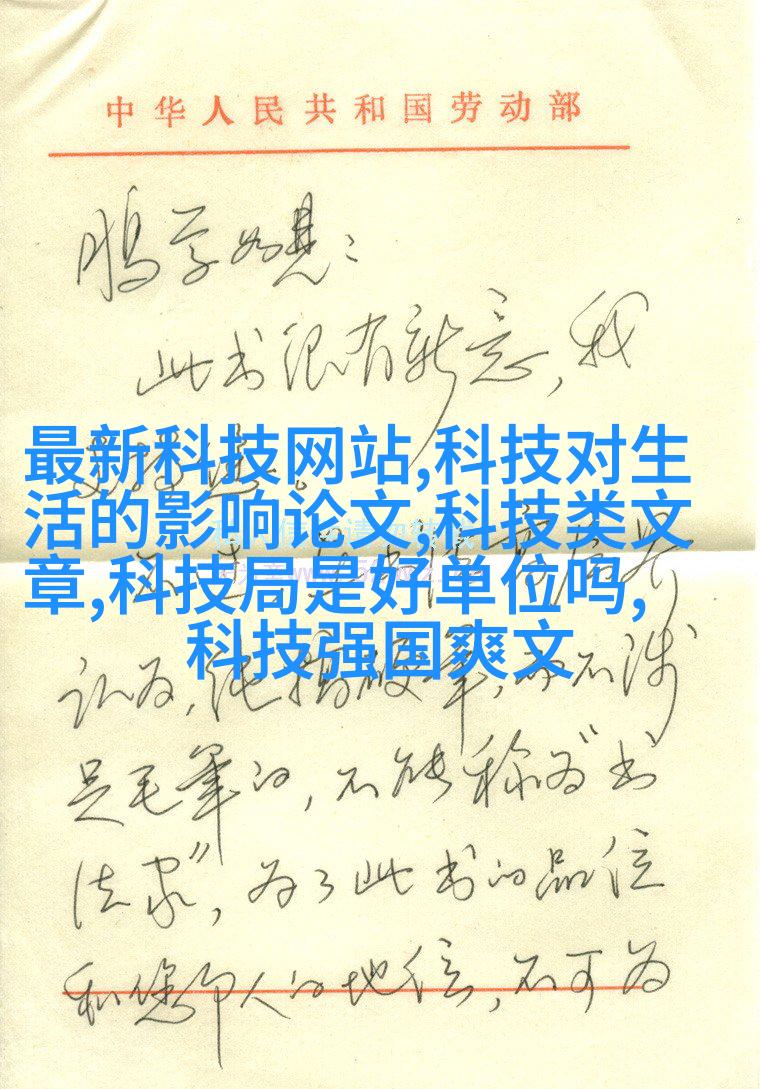 中华人民共和国劳动部
此书很有新意,我
最新科技网站,科技对生
活的影响论文,科技类文
章,科技局是好单位吗,
科技强国爽文
认为,纯搞硬笔,而不涉
足毛笔的,不能称为“书
法家”,为了此书的品位
和您个人的地位,不可为